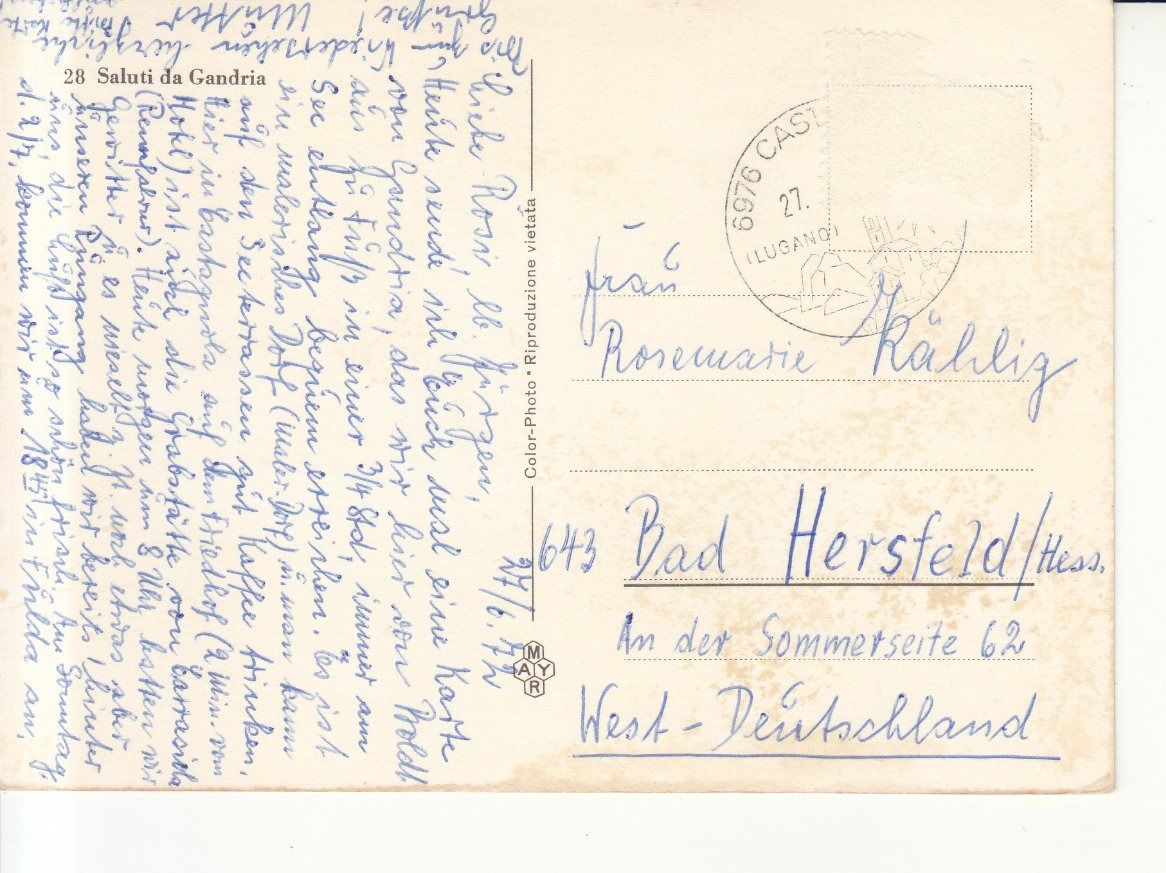 28 Saluti da Gandria
27/6.72
Liebe Rosi, lb. Jürgen,
Heute sende ich Euch mal eine Karte
von Gandria, das wir hier von
aus zu Fuß in einer 3/4 Std. immer am
See entlang bequem erreichen. Es ist
ein malerisches Dorf (Maler-Dorf) u. man kann
auf den Seeterrassen gut Kaffee trinken.
Hier in Castagnola auf dem Friedhof (2 Min. vom
Hotel) ist auch die Grabstätte von
(Rennfahrer). Heute morgen um 8 Uhr hatten wir
Gewitter u. es nieselt z. Zt. noch etwas, aber
unseren Rundgang haben wir bereits hinter
uns, die Luft ist so schön frisch. Am Sonntag,
d. 2/7. kommen wir um 18 45 in Fulda an.
Bis zum Wiedersehen herzliche
Grüße! Mutter
Color-Photo • Riproduzione vietata
MAYR
6976 CAST
27.
(LUGANO)
Frau
Rosemarie Kählig
643 Bad Hersfeld/Hess.
An der Sommerseite 62
West-Deutschland